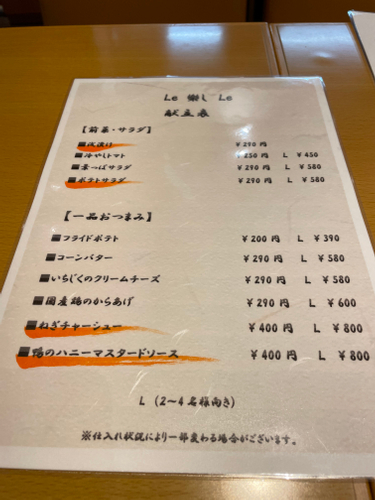 Le 楽し Le
献立表
【前菜・サラダ】
■浅漬け ¥290円
■冷やしトマト ¥250円 L ¥450
■葉っぱサラダ ¥290円 L ¥580
■ポテトサラダ ¥290円 L ¥580
【一品おつまみ】
■フライドポテト ¥200円 L ¥390
■コーンバター ¥290円 L ¥580
■いちじくのクリームチーズ ¥290円 L ¥580
■国産鶏のからあげ ¥290円 L ¥600
■ねぎチャーシュー ¥400円 L ¥800
■鴨のハニーマスタードソース ¥400円 L ¥800
L (2〜4名様向き)
※仕入れ状況により一部変わる場合がございます。